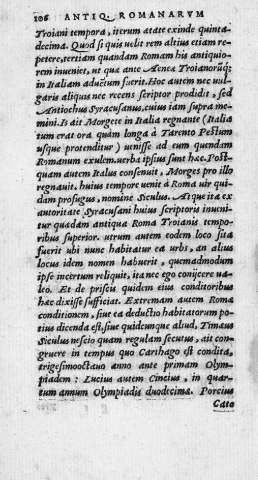 106 ANTIQ. ROMANARVM
Troiani tempora, iterum ætate exinde quinta-
decima. Quod si quis uelit rem altius etiam re-
petere, tertiam quandam Romam his antiquio-
rem inueniet, ut quæ ante Aeneæ Troianorúmq;
in Italiam aductum fuerit. Hoc autem nec uul-
garis aliquis nec recens scriptor prodidit, sed
Antiochus Syracusanus, cuius iam supra me-
mini. Is ait Morgete in Italia regnante (Italia
tum erat ora quàm longà à Tarento Pestum
usque protenditur) uenisse ad eum quendam
Romanum exulem. uerba ipsius sunt hæc. Post-
quam autem Italus consenuit, Morges pro illo
regnauit. huius tempore uenit à Roma uir qui-
dam profugus, nomine Siculus. Atque ita ex
autoritate Syracusani huius scriptoris inueni-
tur quædam antiqua Roma Troianis tempo-
ribus superior. utrum autem eodem loco sita
fuerit ubi nunc habitatur ea urbs, an alius
locus idem nomen habuerit, quemadmodum
ipse incertum reliquit, ita nec ego conijcere ua-
leo. Et de priscis quidem eius conditoribus
hæc dixisse sufficiat. Extremam autem Romæ
conditionem, siue ea deductio habitatorum po-
tius dicenda est, siue quidcunque aliud, Timæus
Siculus nescio quam regulam secutus, ait con-
gruere in tempus quo Carthago est condita,
trigesimooctauo anno ante primam Olym-
piadem: Lucius autem Cincius, in quar-
tum annum Olympiadis duodecimæ. Porcius
Cato